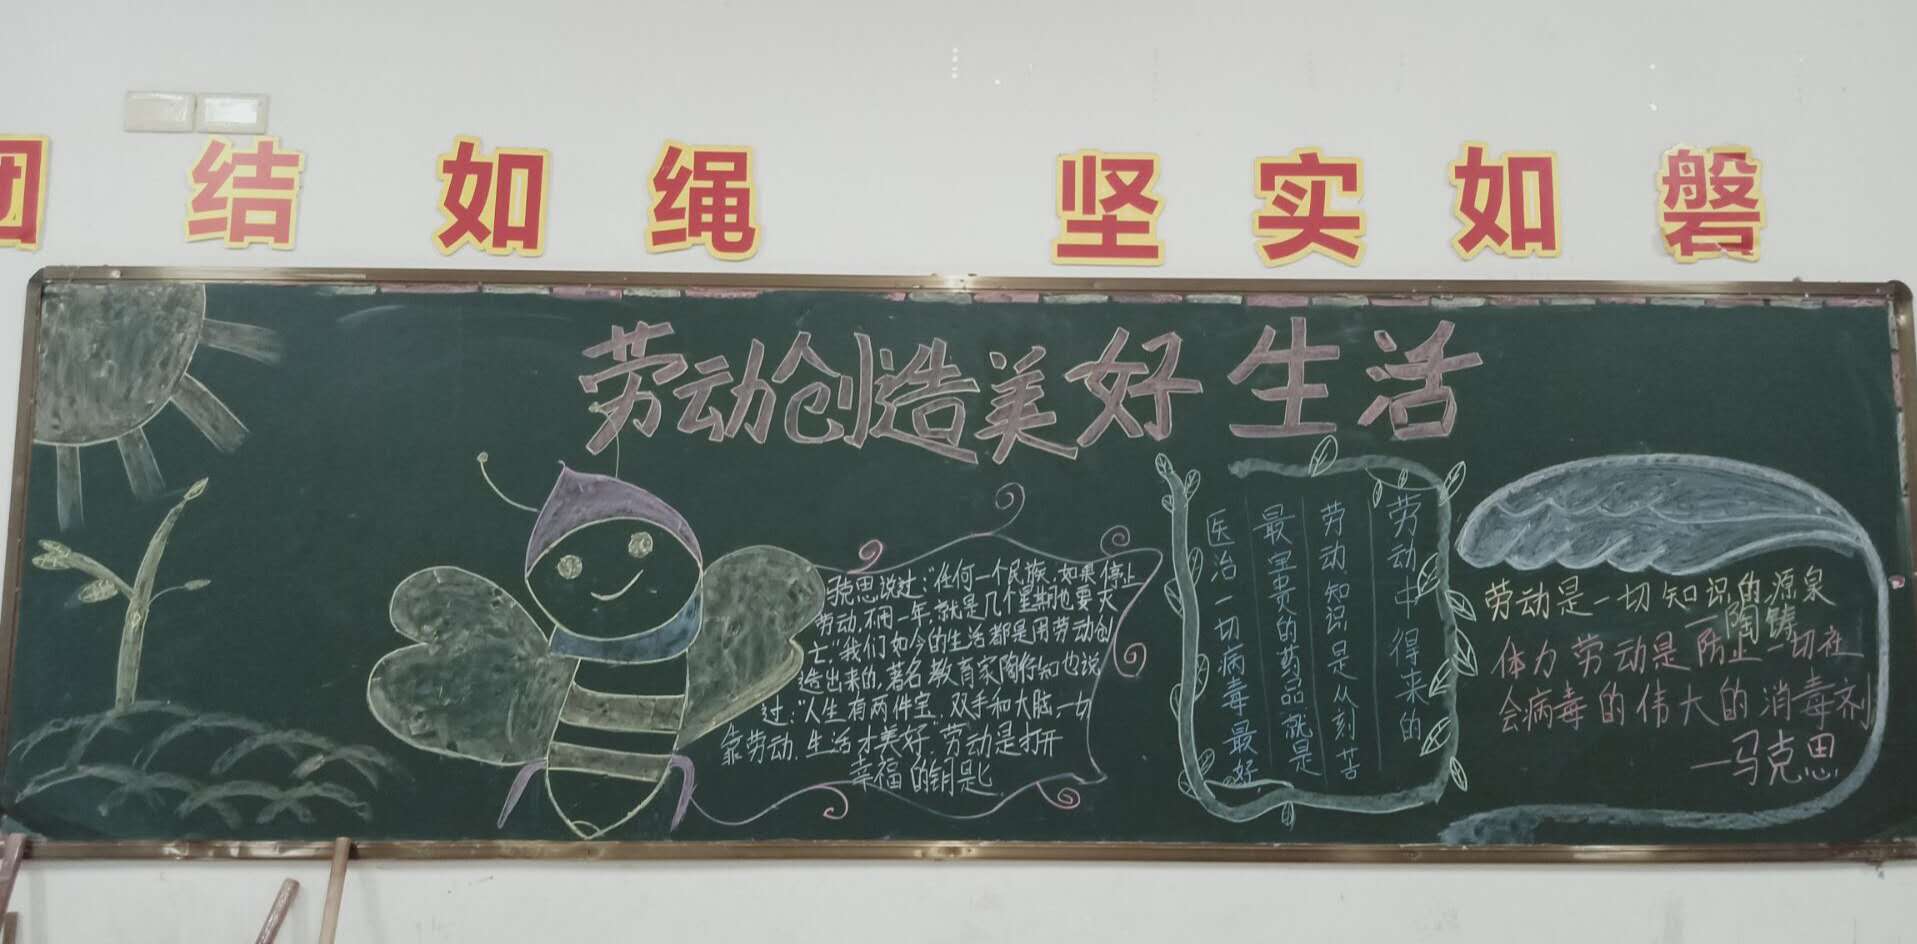 团结如绳 坚实如磐
劳动创造美好生活
马克思说过:“任何一个民族,如果停止
劳动,不用一年,就是几个星期也要灭
亡”我们如今的生活都是用劳动创
造出来的,著名教育家陶行知也说
过:“人生有两件宝,双手和大脑,一切
靠劳动,生活才美好.劳动是打开
幸福的钥匙
劳动中得来的
劳动知识是从刻苦
最宝贵的药品就是
医治一切病毒最好,
劳动是一切知识的源泉
—陶铸
体力劳动是防止一切社
会病毒的伟大的消毒剂
—马克思